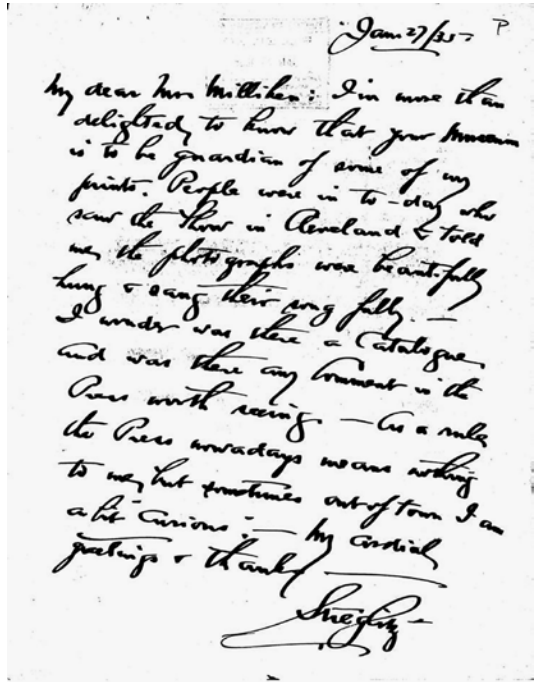 Jan 27/35 — P
My dear Mr Milliken: I'm more than
delighted to know that your Museum
is to be guardian of some of my
prints. People were in to-day who
saw the Show in Cleveland & told
me the photographs were beautifully
hung & sang their song fully. —
I wonder was there a Catalogue,
and was there any Comment in the
Press worth seeing. — As a rule
the Press nowadays means nothing
to me, but sometimes out of town I am
a bit "Curious". — My cordial
greetings & thanks
Stieglitz —